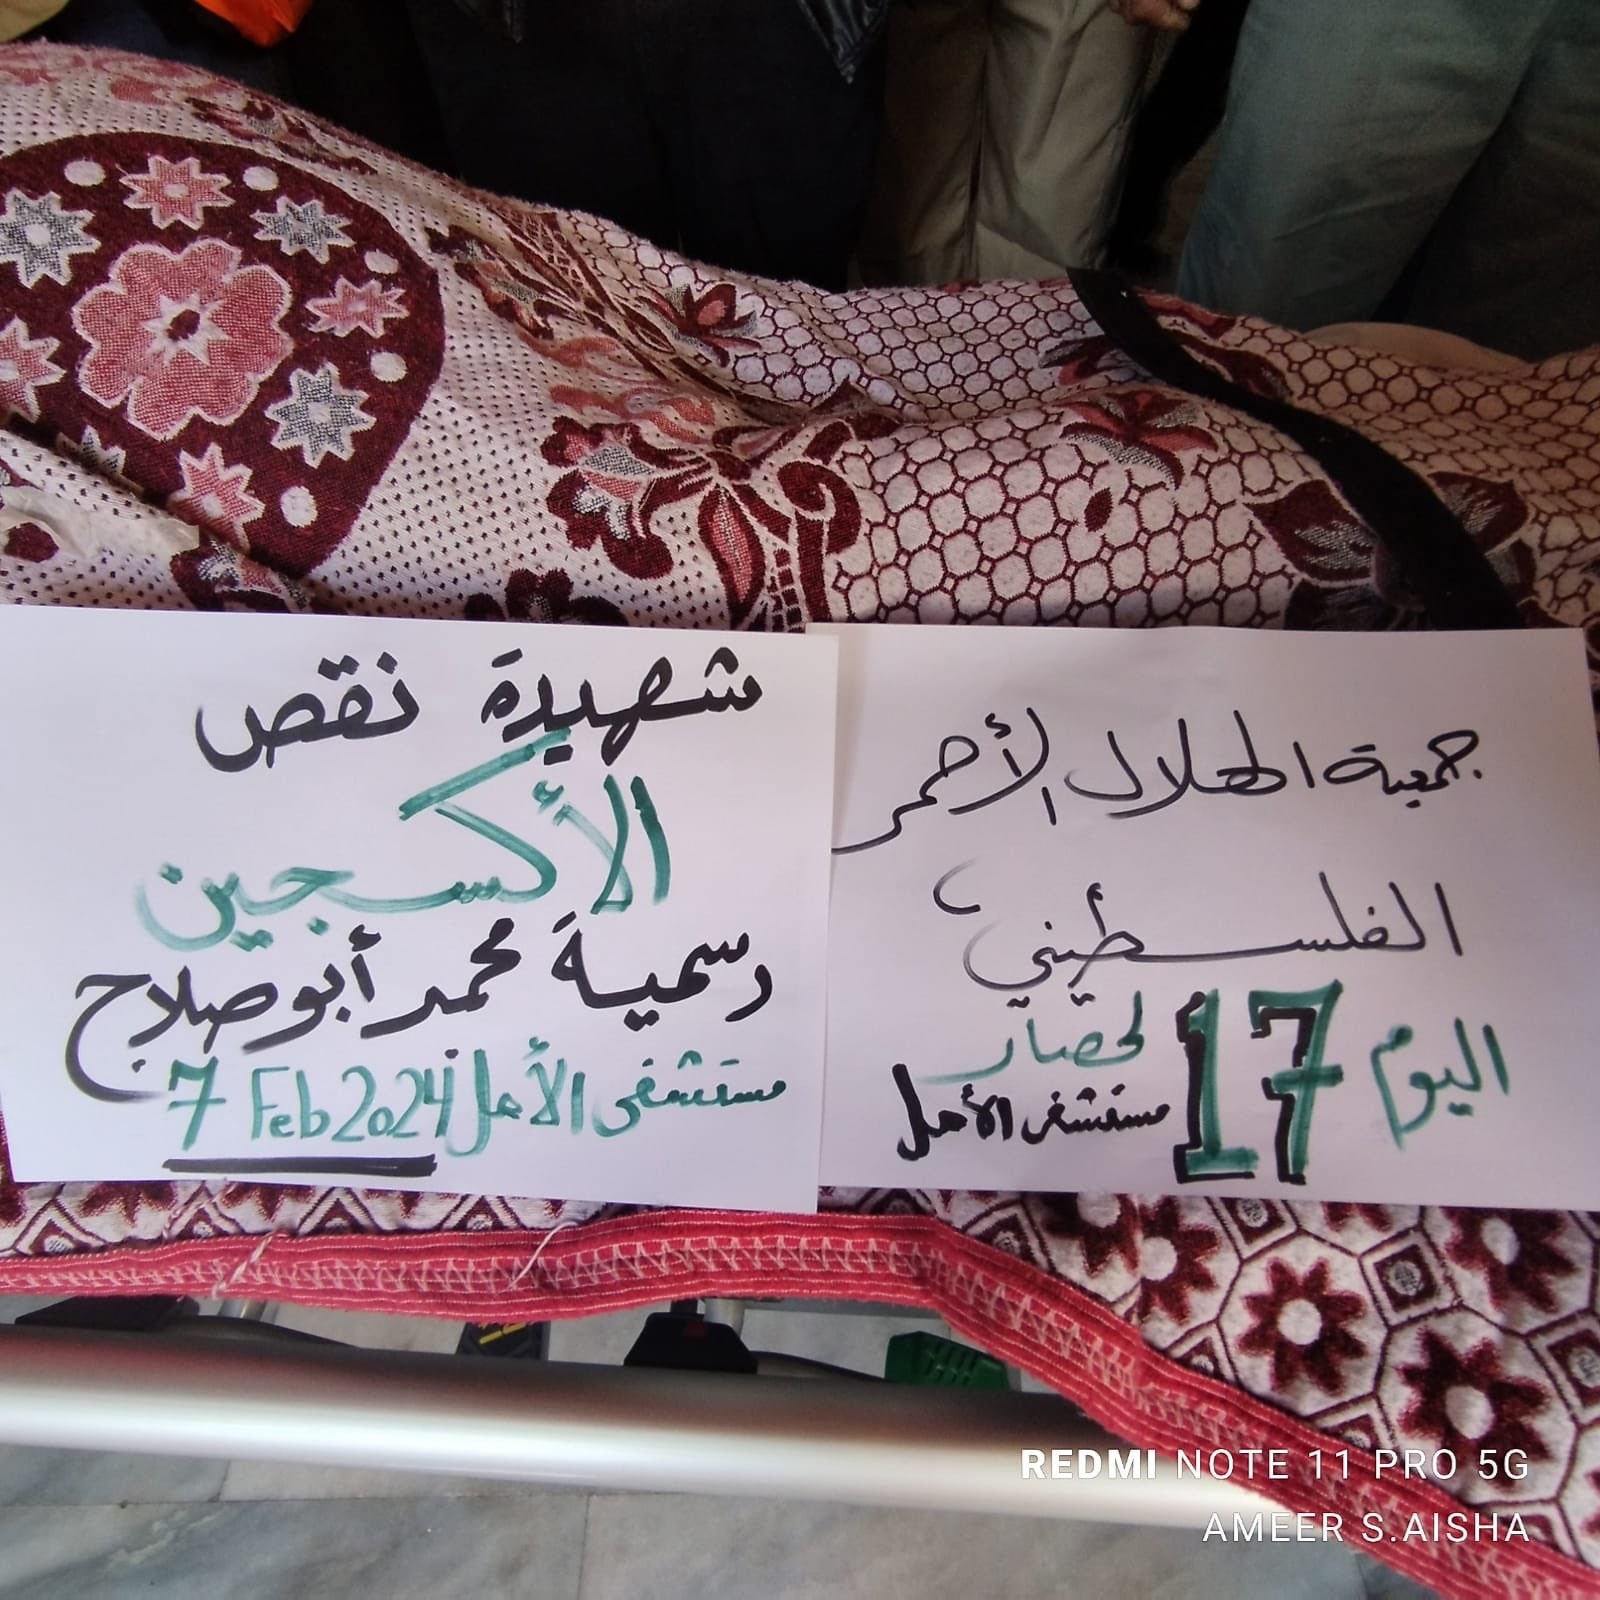 جمعية الهلال الأحمر
الفلسطيني
اليوم 17 لحصار
مستشفى الأمل
شهيدة نقص
الأكسجين
رسمية محمد أبو صلاح
مستشفى الأمل 7 Feb 2024
REDMI NOTE 11 PRO 5G
AMEER S.AISHA